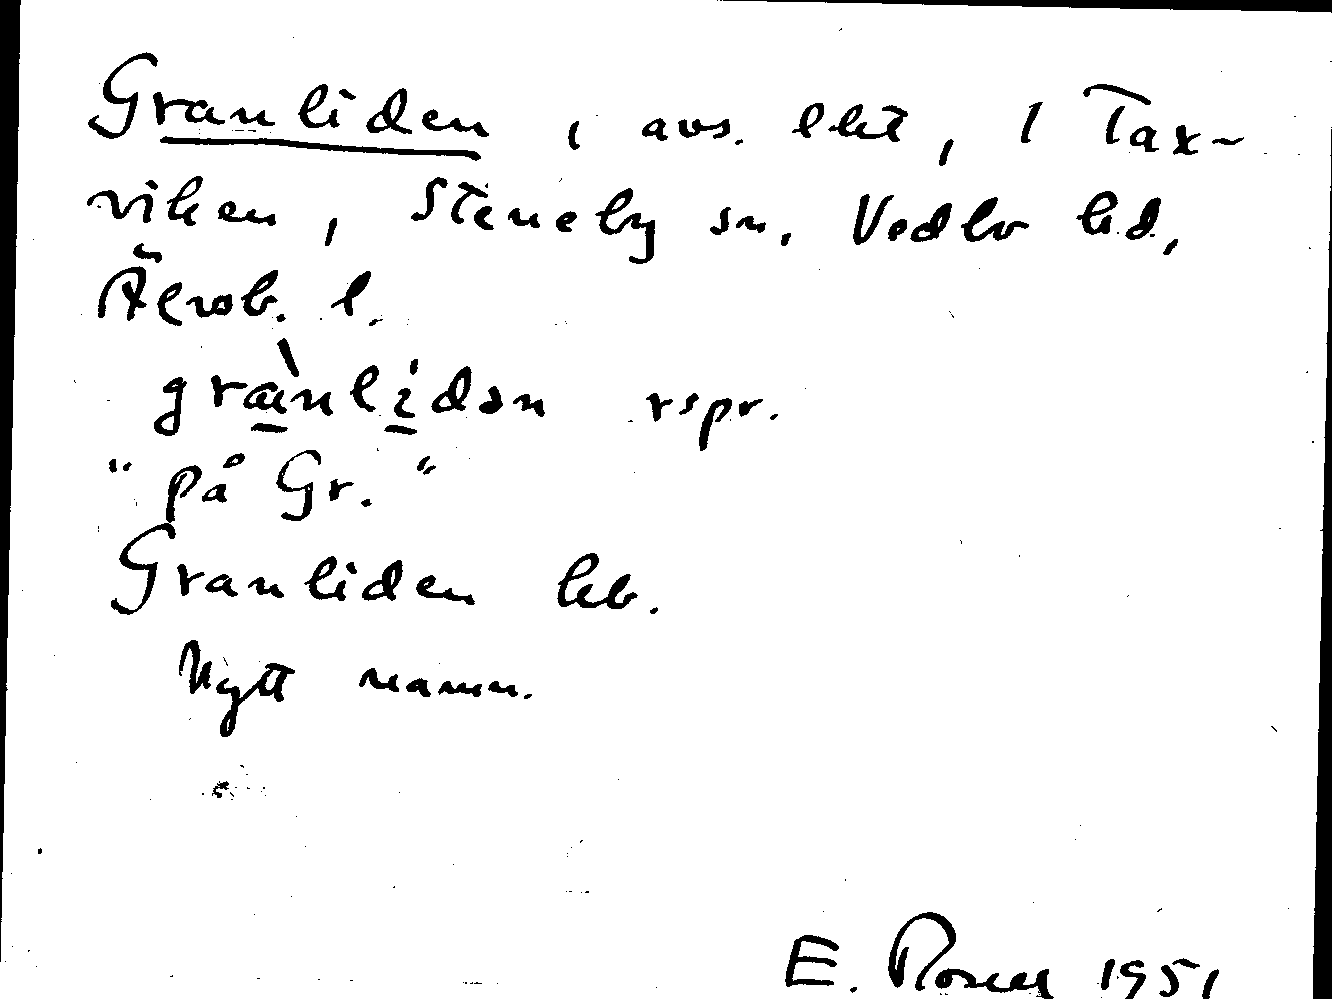 Granliden, avs. lht, 1 Tax-
viken, Steneby sn, Vedbo hd,
Älvsb. l.
grànlídən rspr.
"på Gr."
Granliden kb.
Nytt namn.
E. Rosell 1951